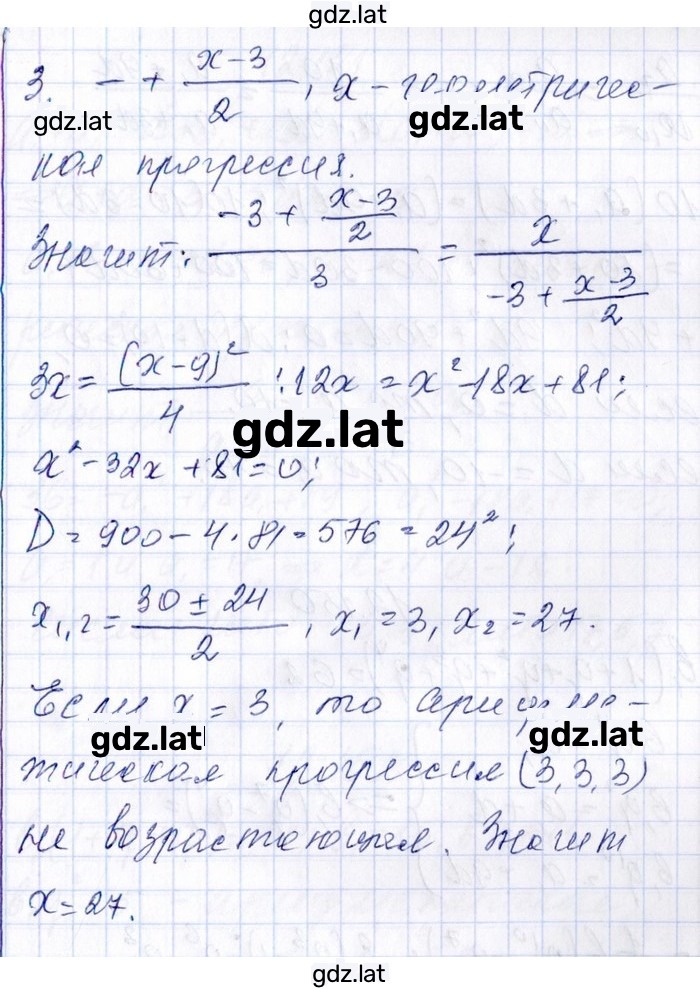 gdz.lat
3. − + (x−3)/2, x − геометричес-
gdz.lat gdz.lat
кая прогрессия.
Значит: (−3 + (x−3)/2)/3 = x/(−3 + (x−3)/2)
3x = (x−9)²/4 ; 12x = x² − 18x + 81;
gdz.lat
x² − 32x + 81 = 0;
D = 900 − 4·81 = 576 = 24²;
x₁,₂ = (30 ± 24)/2, x₁ = 3, x₂ = 27.
Если x = 3, то арифме-
gdz.lat gdz.lat
тическая прогрессия (3, 3, 3)
не возрастающая. Значит
x = 27.
gdz.lat